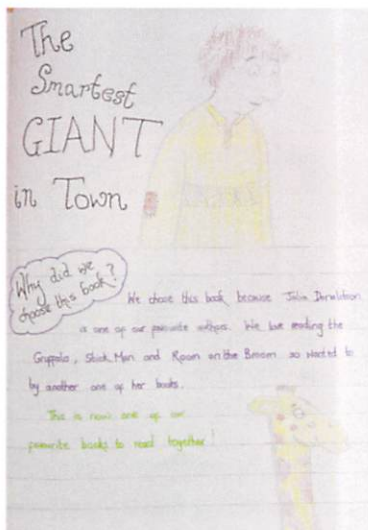 The
Smartest
GIANT
in Town
Why did we
choose this book?
We chose this book because Julia Donaldson
is one of our favourite authors. We love reading the
Gruffalo, Stick Man and Room on the Broom so wanted to
by another one of her books.
This is now one of our
favourite books to read together!